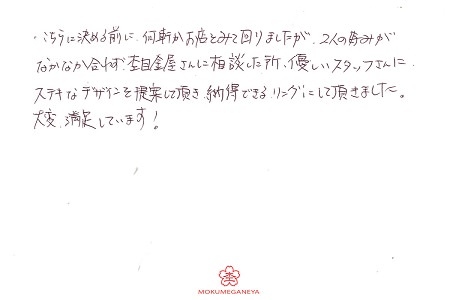 ・こちらに決める前に、何軒かお店をみて回りましたが、2人の好みが
なかなか合わず、杢目金屋さんに相談した所、優しいスタッフさんに
ステキなデザインを提案して頂き、納得できるリングにして頂きました。
大変、満足しています!
MOKUMEGANEYA